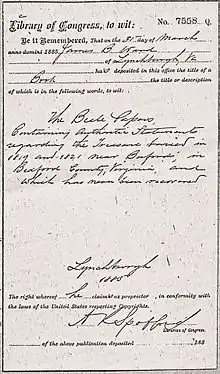 Library of Congress, to wit:
No. 7558 Q.
Be it Remembered, That on the 31 day of March
anno domini 1885 James B. Ward
of Lynchburgh Va
has deposited in this office the title of a
Book the title or description
of which is in the following words, to wit:
The Beale Papers
Containing Authentic Statements
regarding the Treasure buried in
1819 and 1821 near Bufords, in
Bedford County, Virginia, and
Which has never been recovered
Lynchburgh
1885
The right whereof he claims as proprietor, in conformity with
the laws of the United States respecting Copyrights.
A R Spofford
Librarian of Congress.
of the above publication deposited 188